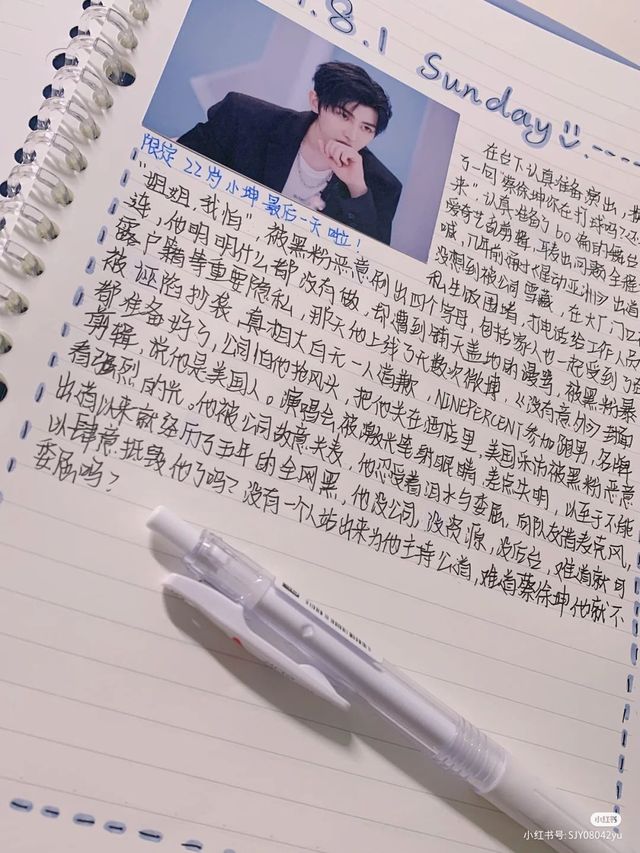 .8.1 Sunday
限定 22岁小坤最后一天啦！
在台下认真准备演出，
了一问"蔡徐坤你在打球吗？还
来"，认真准备的bo
爱奇艺乱剪辑，耳麦出问题全程
喊，几年前桶才《星动亚洲》出道
没想到被公司雪藏，在大厂门口
私生饭围堵，打电话给工作人员
"姐姐，我怕"，被黑粉恶意刷出四个字母，包括家人也一起受到了
连，他明明什么都没有做，却遭到铺天盖地的谩骂，被黑粉暴
露户籍等重要隐私，那天他上线了无数次微博，《没有意外》封面
被诬陷抄袭，真相大白无一人道歉，NINEPERCENT参加跑男，名牌
都准备好了，公司怕他抢风头，把他关在酒店里，美国采访被黑粉恶意
剪辑，说他是美国人。演唱会被激光笔射眼睛，差点失明，以至于不能
看强烈的光。他被公司故意关麦，他忍受着泪水与委屈，向队友借麦克风，
出道以来就经历了五年的全网黑，他没公司，没资源，没后台，难道就可
以肆意抵毁他了吗？没有一个人站出来为他主持公道，难道蔡徐坤他就不
委屈吗？
小红书
小红书号: SJY08042yu